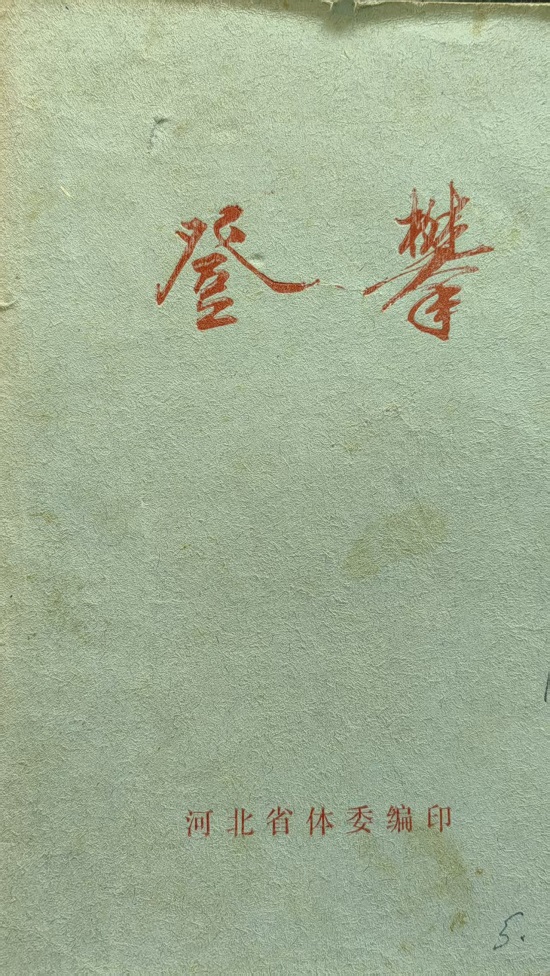 登攀
河北省体委编印
5.